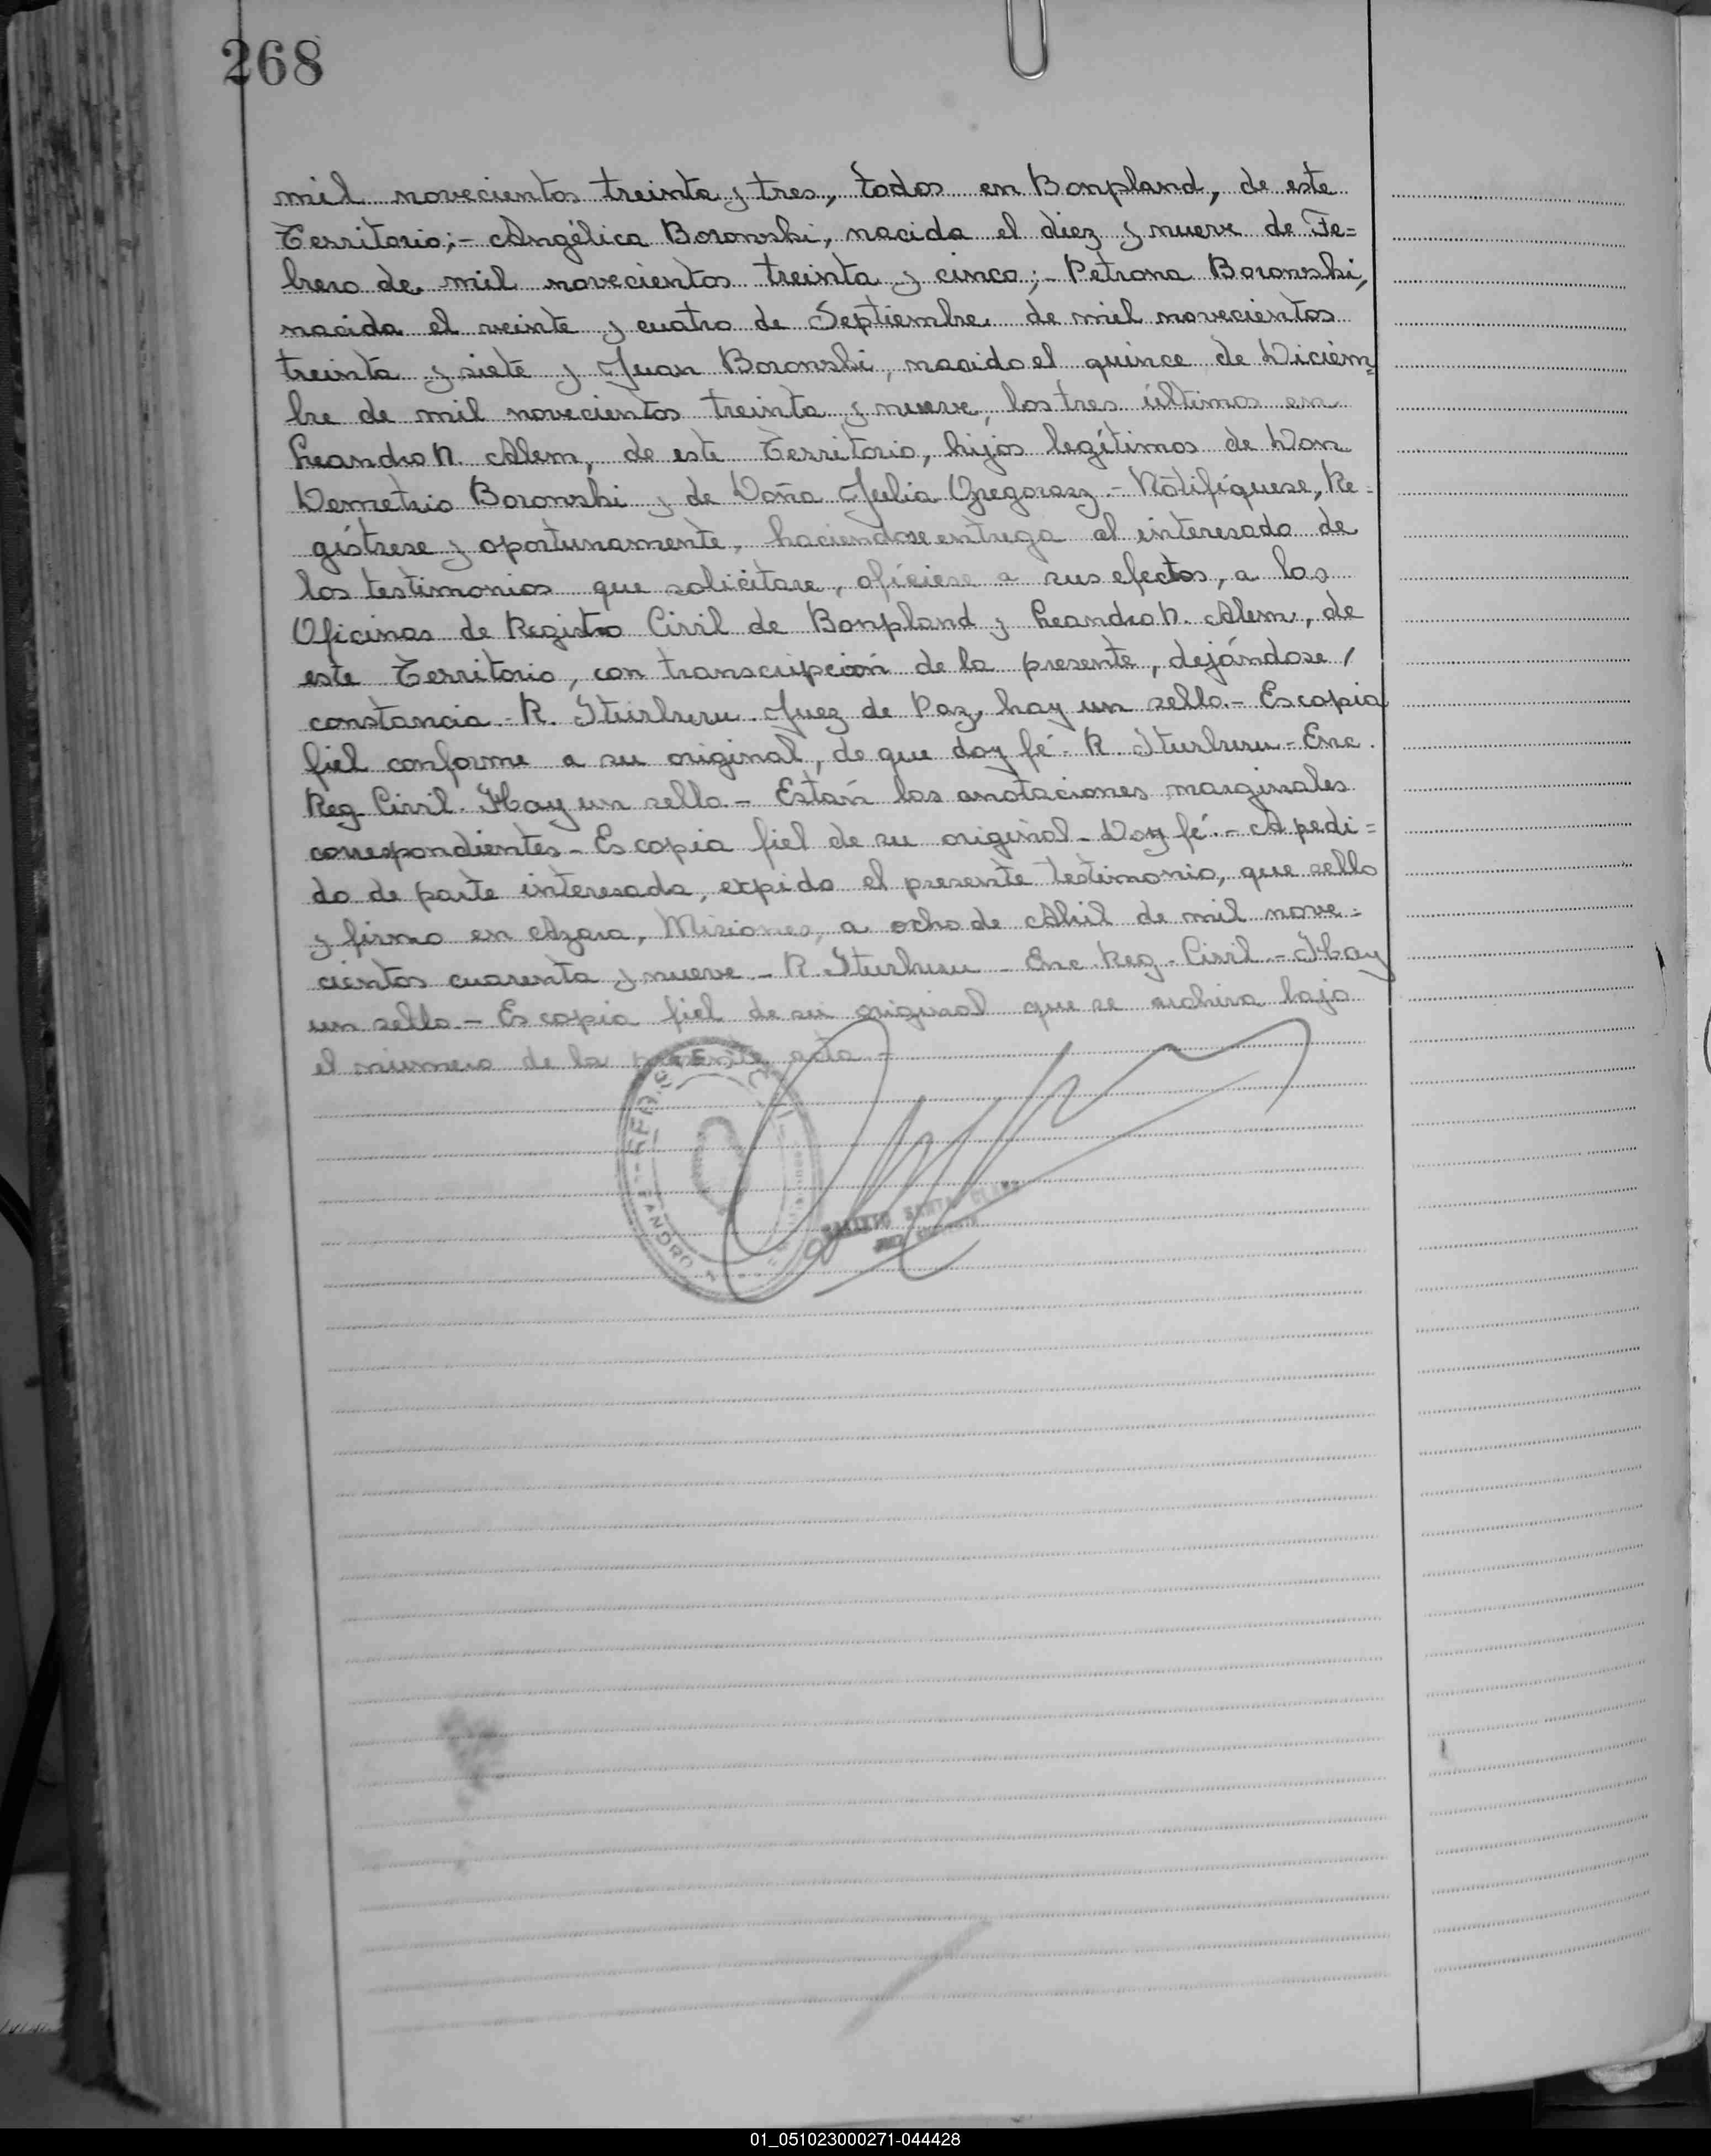 268
mil novecientos treinta y tres, todos en Bonpland, de este
Territorio;- Angélica Boronski, nacida el diez y nueve de Fe=
brero de mil novecientos treinta y cinco;- Petrona Boronski,
nacida el veinte y cuatro de Septiembre de mil novecientos
treinta y siete y Juan Boronski, nacido el quince de Diciem=
bre de mil novecientos treinta y nueve, los tres últimos en
Leandro N. Alem, de este Territorio, hijos legítimos de Don
Demetrio Boronski y de Doña Julia Gregorasz.- Notifíquese, Re=
gístrese y oportunamente, haciendose entrega al interesado de
los testimonios que solicitare, ofíciese a sus efectos, a las
Oficinas de Registro Civil de Bonpland y Leandro N. Alem, de
este Territorio, con transcripción de la presente, dejándose /
constancia - R. Iturburu. Juez de Paz, hay un sello.- Es copia
fiel conforme a su original, de que doy fé - R. Iturburu - Enc.
Reg. Civil. Hay un sello - Están las anotaciones marginales
correspondientes - Es copia fiel de su original - Doy fé.- A pedi=
do de parte interesada, expido el presente testimonio, que sello
y firmo en Azara, Misiones, a ocho de Abril de mil nove=
cientos cuarenta y nueve - R Iturburu - Enc. Reg. Civil - Hay
un sello.- Es copia fiel de su original que se archiva bajo
el número de la presente acta -
01_051023000271-044428